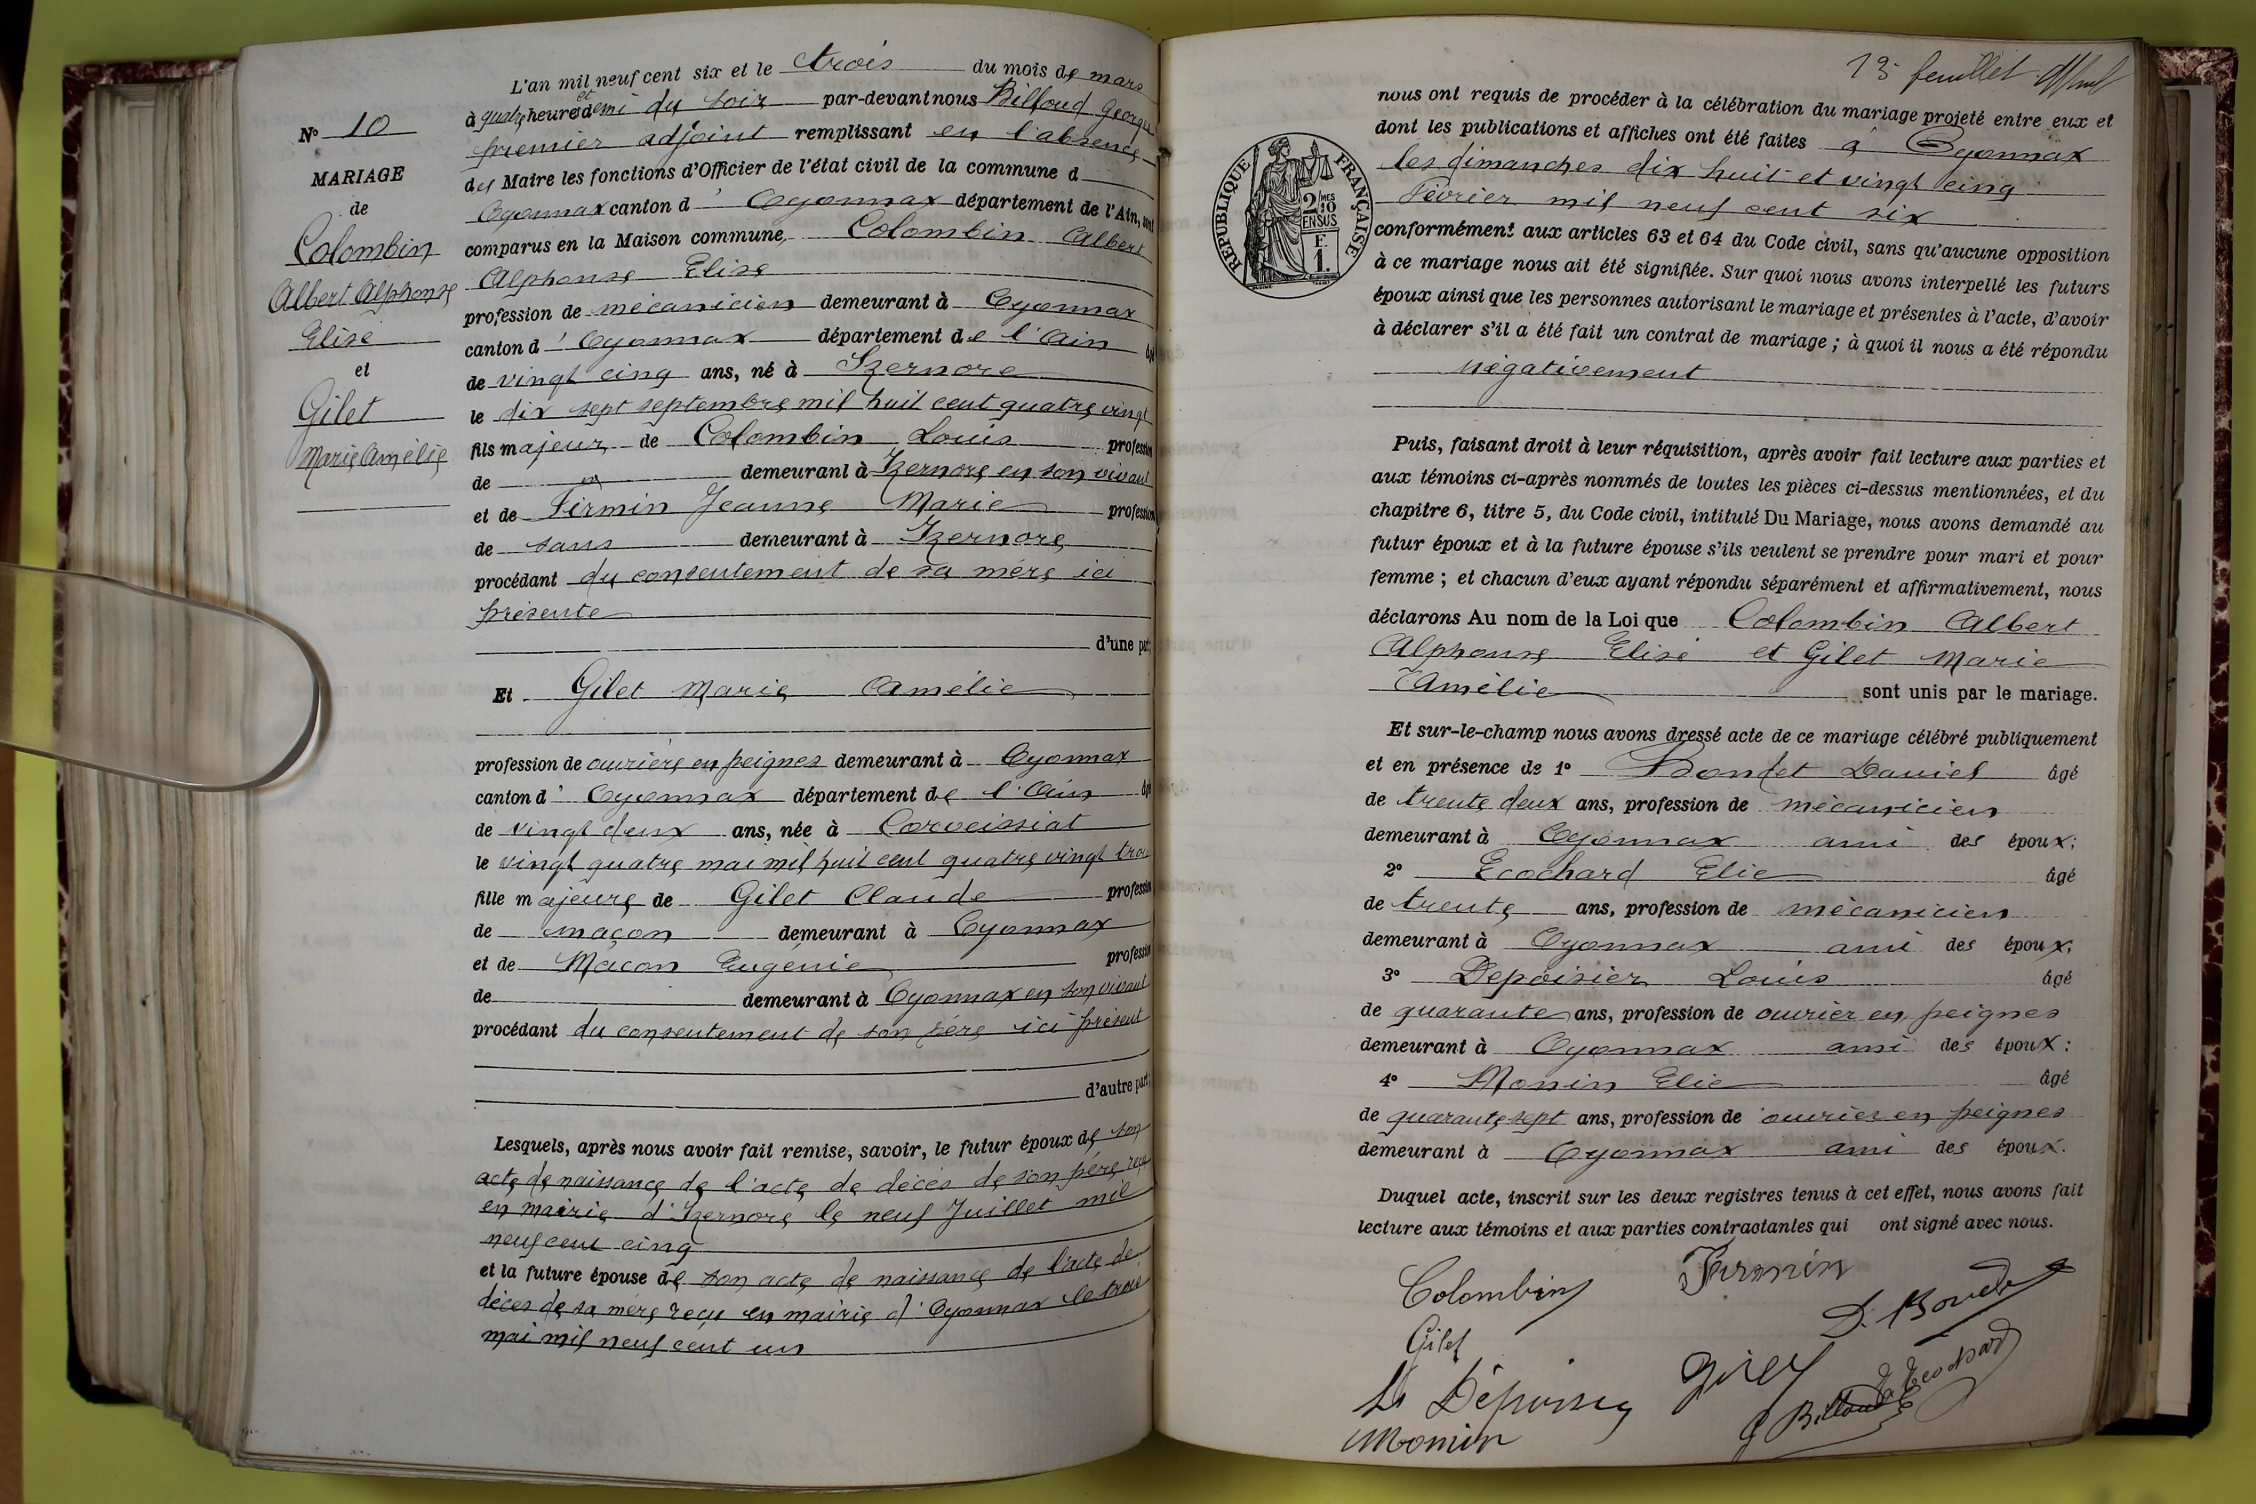 N° 10
MARIAGE
de
Colombin
Albert Alphonse
Elisé
et
Gilet
Marie Amélie
L'an mil neuf cent six et le trois du mois de mars
à quatre heures et demi du soir par-devant nous Billoud Georges
premier adjoint remplissant en l'absence
du Maire les fonctions d'Officier de l'état civil de la commune d
Oyonnax canton d' Oyonnax département de l'Ain, sont
comparus en la Maison commune, Colombin Albert
Alphonse Elisé
profession de mécanicien demeurant à Oyonnax
canton d' Oyonnax département de l'Ain âgé
de vingt cinq ans, né à Izernore
le dix sept septembre mil huit cent quatre vingt
fils majeur de Colombin Louis profession
de demeurant à Izernore en son vivant
et de Firmin Jeanne Marie profession
de sans demeurant à Izernore
procédant du consentement de sa mère ici
présente
d'une part;
Et Gilet Marie Amélie
profession de ouvrière en peignes demeurant à Oyonnax
canton d' Oyonnax département de l'Ain âgé
de vingt deux ans, née à Corveissiat
le vingt quatre mai mil huit cent quatre vingt trois
fille majeure de Gilet Claude profession
de maçon demeurant à Oyonnax
et de Maçon Eugenie profession
de demeurant à Oyonnax en son vivant
procédant du consentement de son père ici présent
d'autre part;
Lesquels, après nous avoir fait remise, savoir, le futur époux de son
acte de naissance de l'acte de décès de son père reçu
en mairie d'Izernore le neuf Juillet mil
neuf cent cinq
et la future épouse de son acte de naissance de l'acte de
décès de sa mère reçu en mairie d'Oyonnax le trois
mai mil neuf cent un
13e feuillet
RÉPUBLIQUE FRANÇAISE
2/10 MES
EN SUS
F.
1.
nous ont requis de procéder à la célébration du mariage projeté entre eux et
dont les publications et affiches ont été faites à Oyonnax
les dimanches dix huit et vingt cinq
Février mil neuf cent six
conformément aux articles 63 et 64 du Code civil, sans qu'aucune opposition
à ce mariage nous ait été signifiée. Sur quoi nous avons interpellé les futurs
époux ainsi que les personnes autorisant le mariage et présentes à l'acte, d'avoir
à déclarer s'il a été fait un contrat de mariage; à quoi il nous a été répondu
négativement
Puis, faisant droit à leur réquisition, après avoir fait lecture aux parties et
aux témoins ci-après nommés de toutes les pièces ci-dessus mentionnées, et du
chapitre 6, titre 5, du Code civil, intitulé Du Mariage, nous avons demandé au
futur époux et à la future épouse s'ils veulent se prendre pour mari et pour
femme; et chacun d'eux ayant répondu séparément et affirmativement, nous
déclarons Au nom de la Loi que Colombin Albert
Alphonse Elisé et Gilet Marie
Amélie sont unis par le mariage.
Et sur-le-champ nous avons dressé acte de ce mariage célébré publiquement
et en présence de 1° Daniel âgé
de trente deux ans, profession de mécanicien
demeurant à Oyonnax ami des époux;
2° Ecochard Elie âgé
de trente ans, profession de mécanicien
demeurant à Oyonnax ami des époux;
3° Depoisier Louis âgé
de quarante ans, profession de ouvrier en peignes
demeurant à Oyonnax ami des époux:
4° Monin Elie âgé
de quarante sept ans, profession de ouvrier en peignes
demeurant à Oyonnax ami des époux.
Duquel acte, inscrit sur les deux registres tenus à cet effet, nous avons fait
lecture aux témoins et aux parties contractantes qui ont signé avec nous.
Colombin Firmin
Gilet
Monin G Billoud